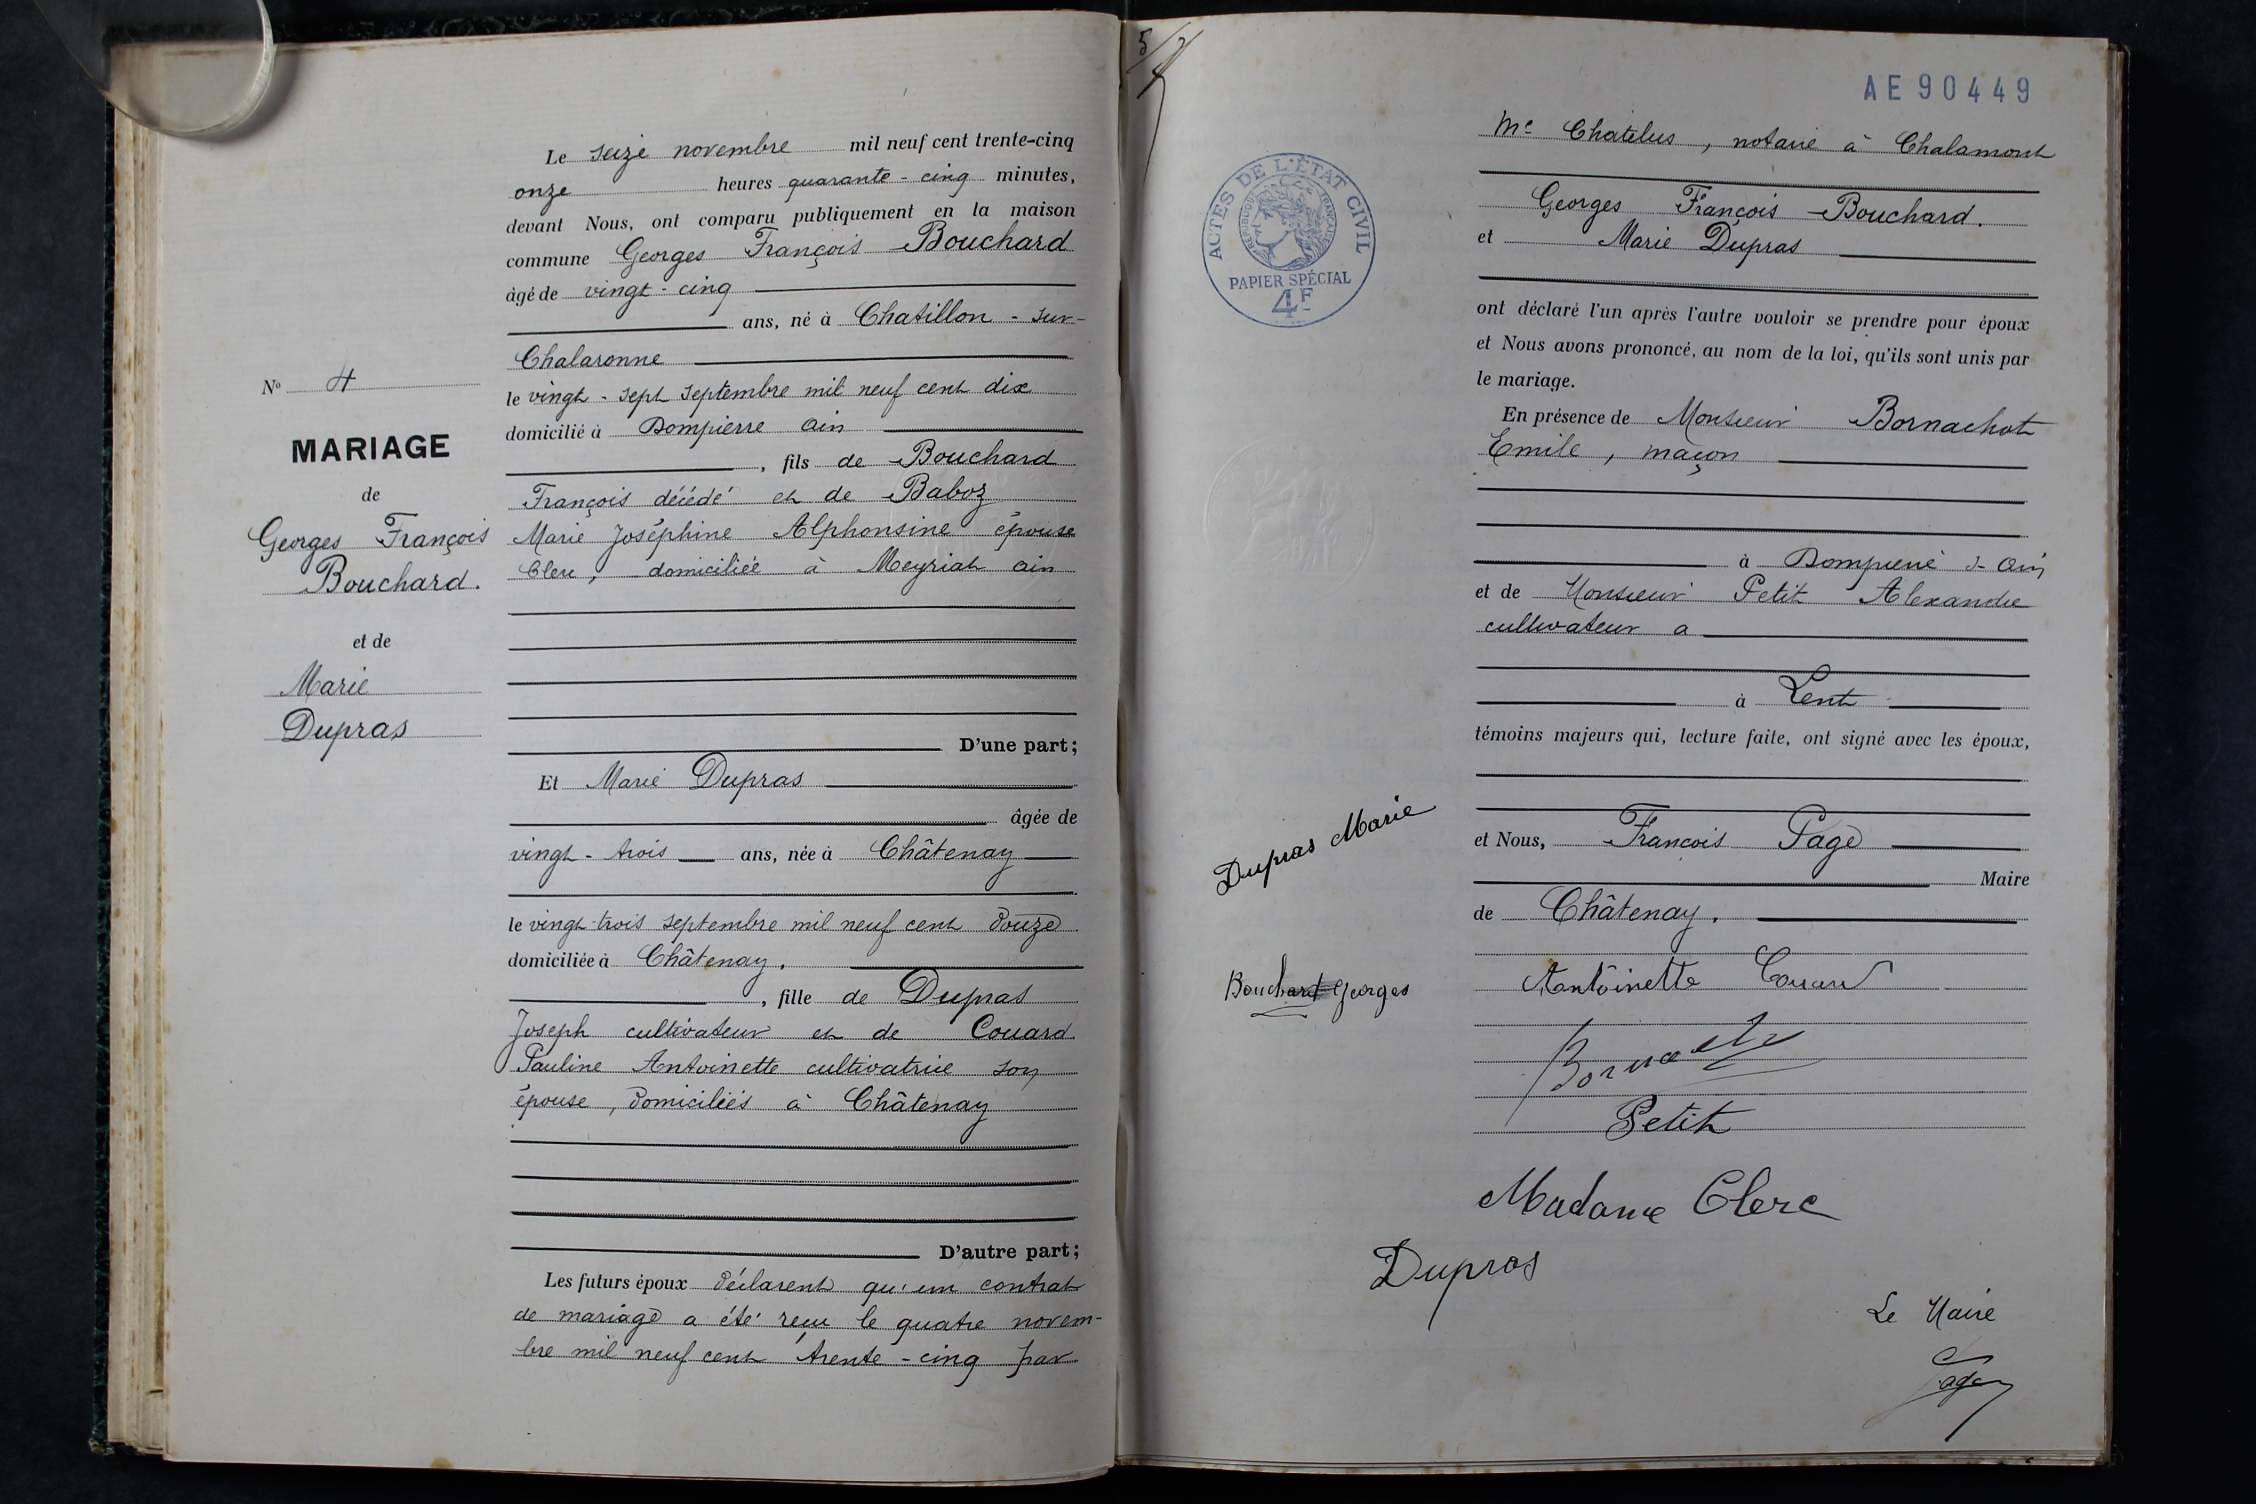 Le seize novembre mil neuf cent trente-cinq
onze heures quarante-cinq minutes,
devant Nous, ont comparu publiquement en la maison
commune Georges François Bouchard
âgé de vingt-cinq
ans, né à Chatillon-sur-
Chalaronne
le vingt-sept septembre mil neuf cent dix
domicilié à Dompierre Ain
, fils de Bouchard
François décédé et de Baboz
Marie Joséphine Alphonsine épouse
Clerc, domiciliée à Meyriat ain
D'une part;
Et Marie Dupras
âgée de
vingt-trois ans, née à Châtenay
le vingt-trois septembre mil neuf cent douze
domiciliée à Châtenay.
, fille de Dupras
Joseph cultivateur et de Couard
Pauline Antoinette cultivatrice son
épouse, domiciliés à Châtenay
D'autre part;
Les futurs époux déclarent qu'un contrat
de mariage a été reçu le quatre novem-
bre mil neuf cent trente-cinq par
No 4
MARIAGE
de
Georges François
Bouchard.
et de
Marie
Dupras
AE90449
ACTES DE L'ÉTAT CIVIL
RÉPUBLIQUE FRANÇAISE
PAPIER SPÉCIAL
4F
Me Chatelus, notaire à Chalamont
Georges François Bouchard.
et Marie Dupras
ont déclaré l'un après l'autre vouloir se prendre pour époux
et Nous avons prononcé, au nom de la loi, qu'ils sont unis par
le mariage.
En présence de Monsieur Bornachot
Emile, maçon
à Dompierre s- Ain
et de Monsieur Petit Alexandre
cultivateur a
à Lent
témoins majeurs qui, lecture faite, ont signé avec les époux,
et Nous, François Page
Maire
de Châtenay.
Antoinette
Petit
Madame Clerc
Dupras
Le Maire
Page
Dupras Marie
Bouchard Georges